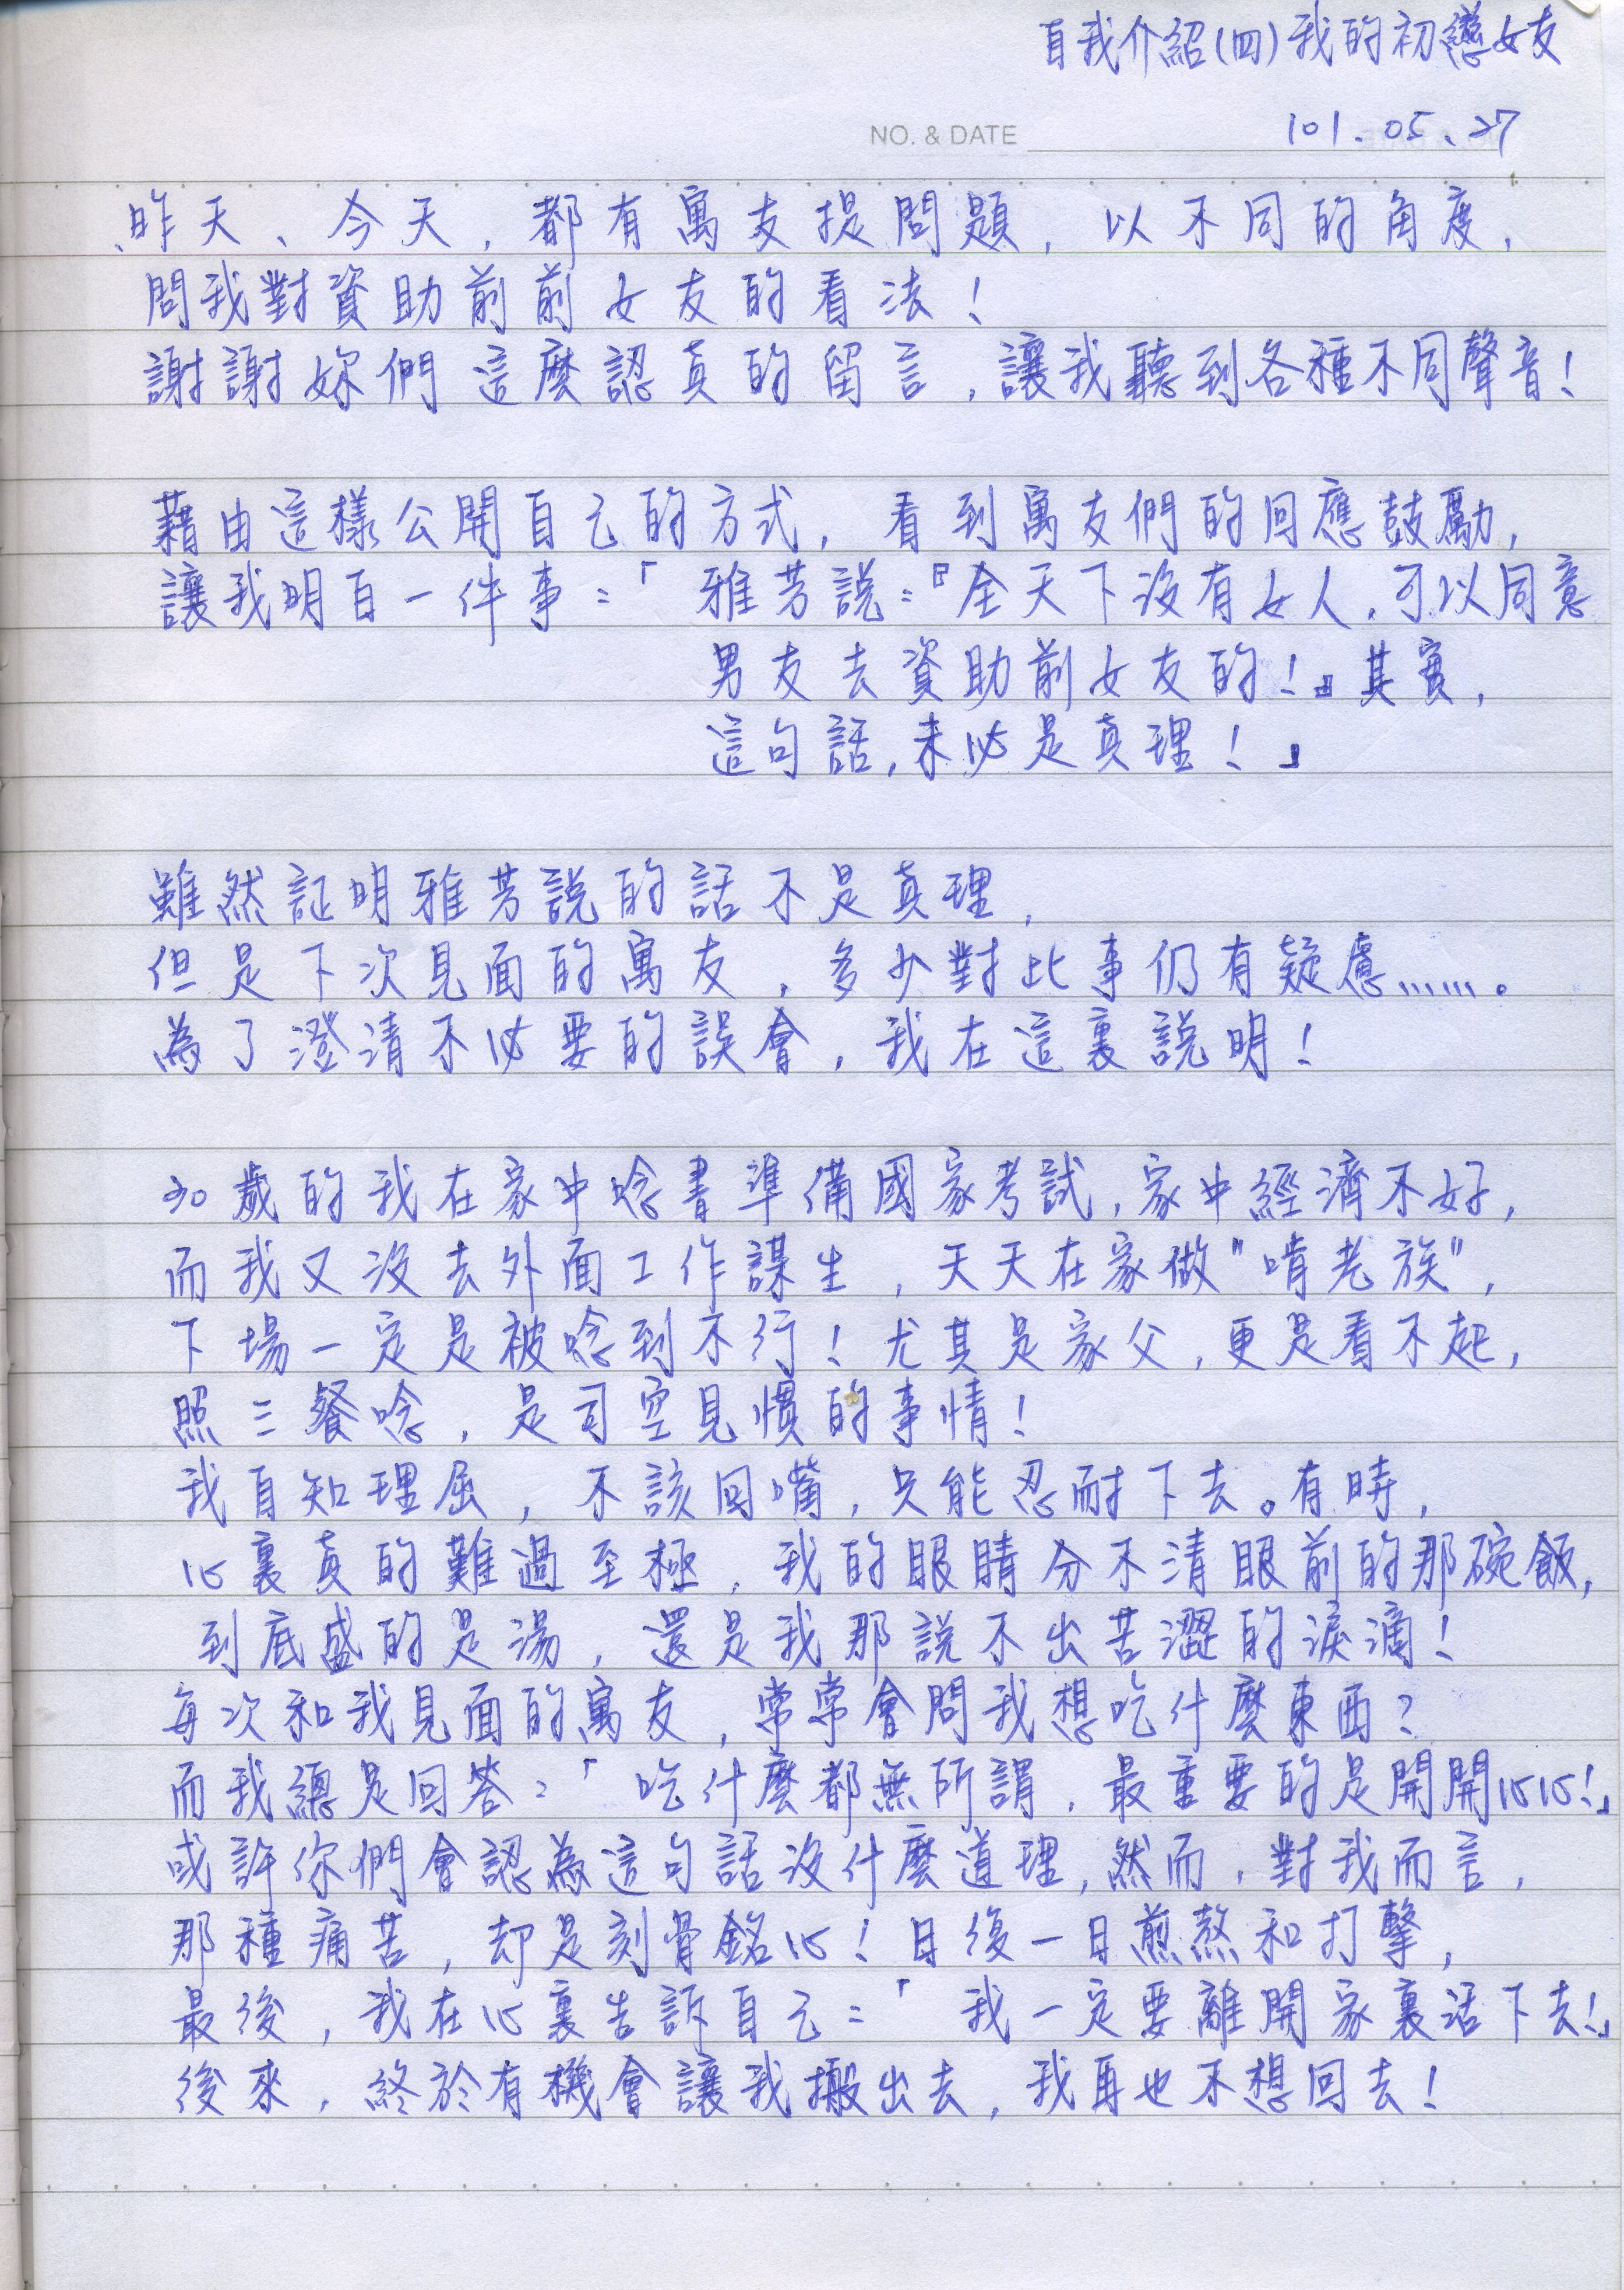 自我介紹(四)我的初戀女友
NO. & DATE 101.05.27
昨天、今天,都有寓友提問題,以不同的角度,
問我對資助前前女友的看法!
謝謝妳們這麼認真的留言,讓我聽到各種不同聲音!
藉由這樣公開自己的方式,看到寓友們的回應鼓勵,
讓我明白一件事:「雅芳說:『全天下沒有女人,可以同意
男友去資助前女友的!』其實,
這句話,未必是真理!』
雖然証明雅芳說的話不是真理,
但是下次見面的寓友,多少對此事仍有疑慮……。
為了澄清不必要的誤會,我在這裏說明!
30歲的我在家中唸書準備國家考試,家中經濟不好,
而我又沒去外面工作謀生,天天在家做"啃老族",
下場一定是被唸到不行!尤其是家父,更是看不起,
照三餐唸,是司空見慣的事情!
我自知理屈,不該回嘴,只能忍耐下去。有時,
心裏真的難過至極,我的眼睛分不清眼前的那碗飯,
到底盛的是湯,還是我那說不出苦澀的淚滴!
每次和我見面的寓友,常常會問我想吃什麼東西?
而我總是回答:「吃什麼都無所謂,最重要的是開開心心!」
或許你們會認為這句話沒什麼道理,然而,對我而言,
那種痛苦,却是刻骨銘心!日後一日煎熬和打擊,
最後,我在心裏告訴自己:「我一定要離開家裏活下去!」
後來,終於有機會讓我搬出去,我再也不想回去!